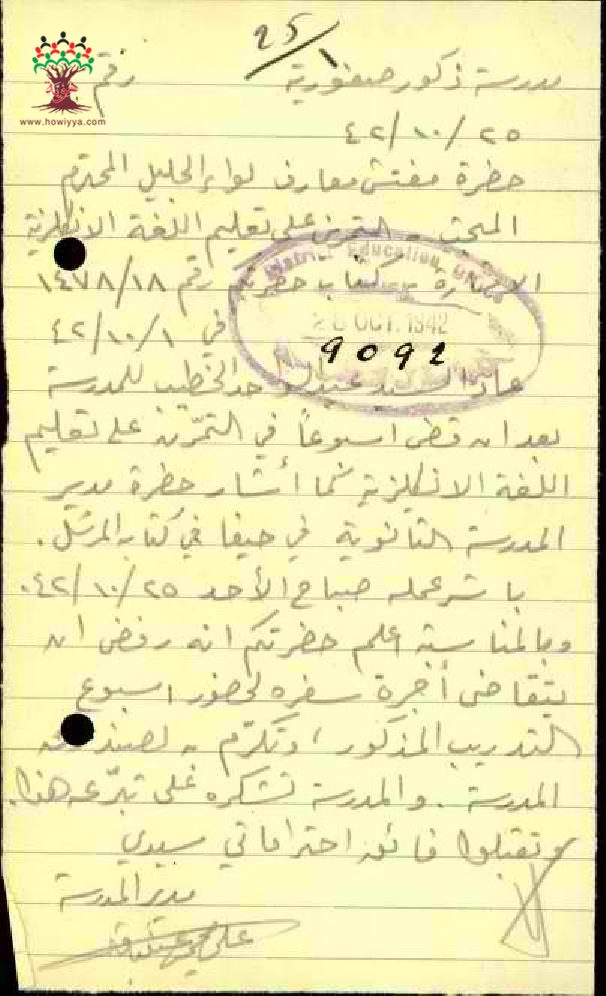 ٢٥/١
مدرسة ذكور صفورية رقم
www.howiyya.com
٤٢/١٠/٢٥
حضرة مفتش معارف لواء الجليل المحترم
المبحث - التمرين على تعليم اللغة الانكليزية
الاشارة - كتاب حضرتكم رقم ١٤٧٨/١٨
في ٤٢/١٠/١
District Education Office
28 OCT. 1942
9092
عاد السيد عبد الواحد الخطيب للمدرسة
بعد ان قضى اسبوعاً في التمرّن على تعليم
اللغة الانكليزية كما أشار حضرة مدير
المدرسة الثانوية في حيفا في كتابه المرسل.
باشر عمله صباح الأحد ٤٢/١٠/٢٥.
وبالمناسبة اعلم حضرتكم انه رفض ان
يتقاضى أجرة سفره لحضور اسبوع
التدريب المذكور، وتكرّم به لصندوق
المدرسة. والمدرسة تشكره على تبرّعه هذا.
وتقبلوا فائق احتراماتي سيدي
مدير المدرسة